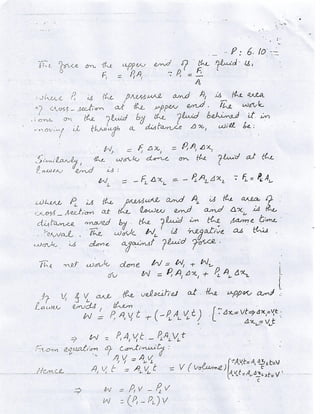 P: 6.10
The force on the upper end of the fluid is,
F₁ = P₁A₁ ∵ P₁ = F₁/A
where P₁ is the pressure and A₁ is the area
of cross-section at the upper end. The work
done on the fluid by the fluid behind it in
moving it through a distance Δx₁ will be:
W₁ = F₁Δx₁ = P₁A₁Δx₁
Similarly, the work done on the fluid at the
lower end is:
W₂ = -F₂Δx₂ = -P₂A₂Δx₂ ∵ F₂ = P₂A₂
where P₂ is the pressure and A₂ is the area of
cross-section at the lower end and Δx₂ is the
distance moved by the fluid in the same time
interval. The work W₂ is negative as this
work is done against fluid force.
The net work done W = W₁ + W₂
or W = P₁A₁Δx₁ + P₂A₂Δx₂
If V₁ & V₂ are the velocities at the upper and
lower ends, then
W = P₁A₁V₁t + (-P₂A₂V₂t) [∵ Δx = Vt ⇒ Δx₁ = V₁t
Δx₂ = V₂t
⇒ W = P₁A₁V₁t - P₂A₂V₂t
From equation of continuity:
A₁V₁ = A₂V₂
Hence A₁V₁t = A₂V₂t = V (volume)
⇒ W = P₁V - P₂V
W = (P₁-P₂)V